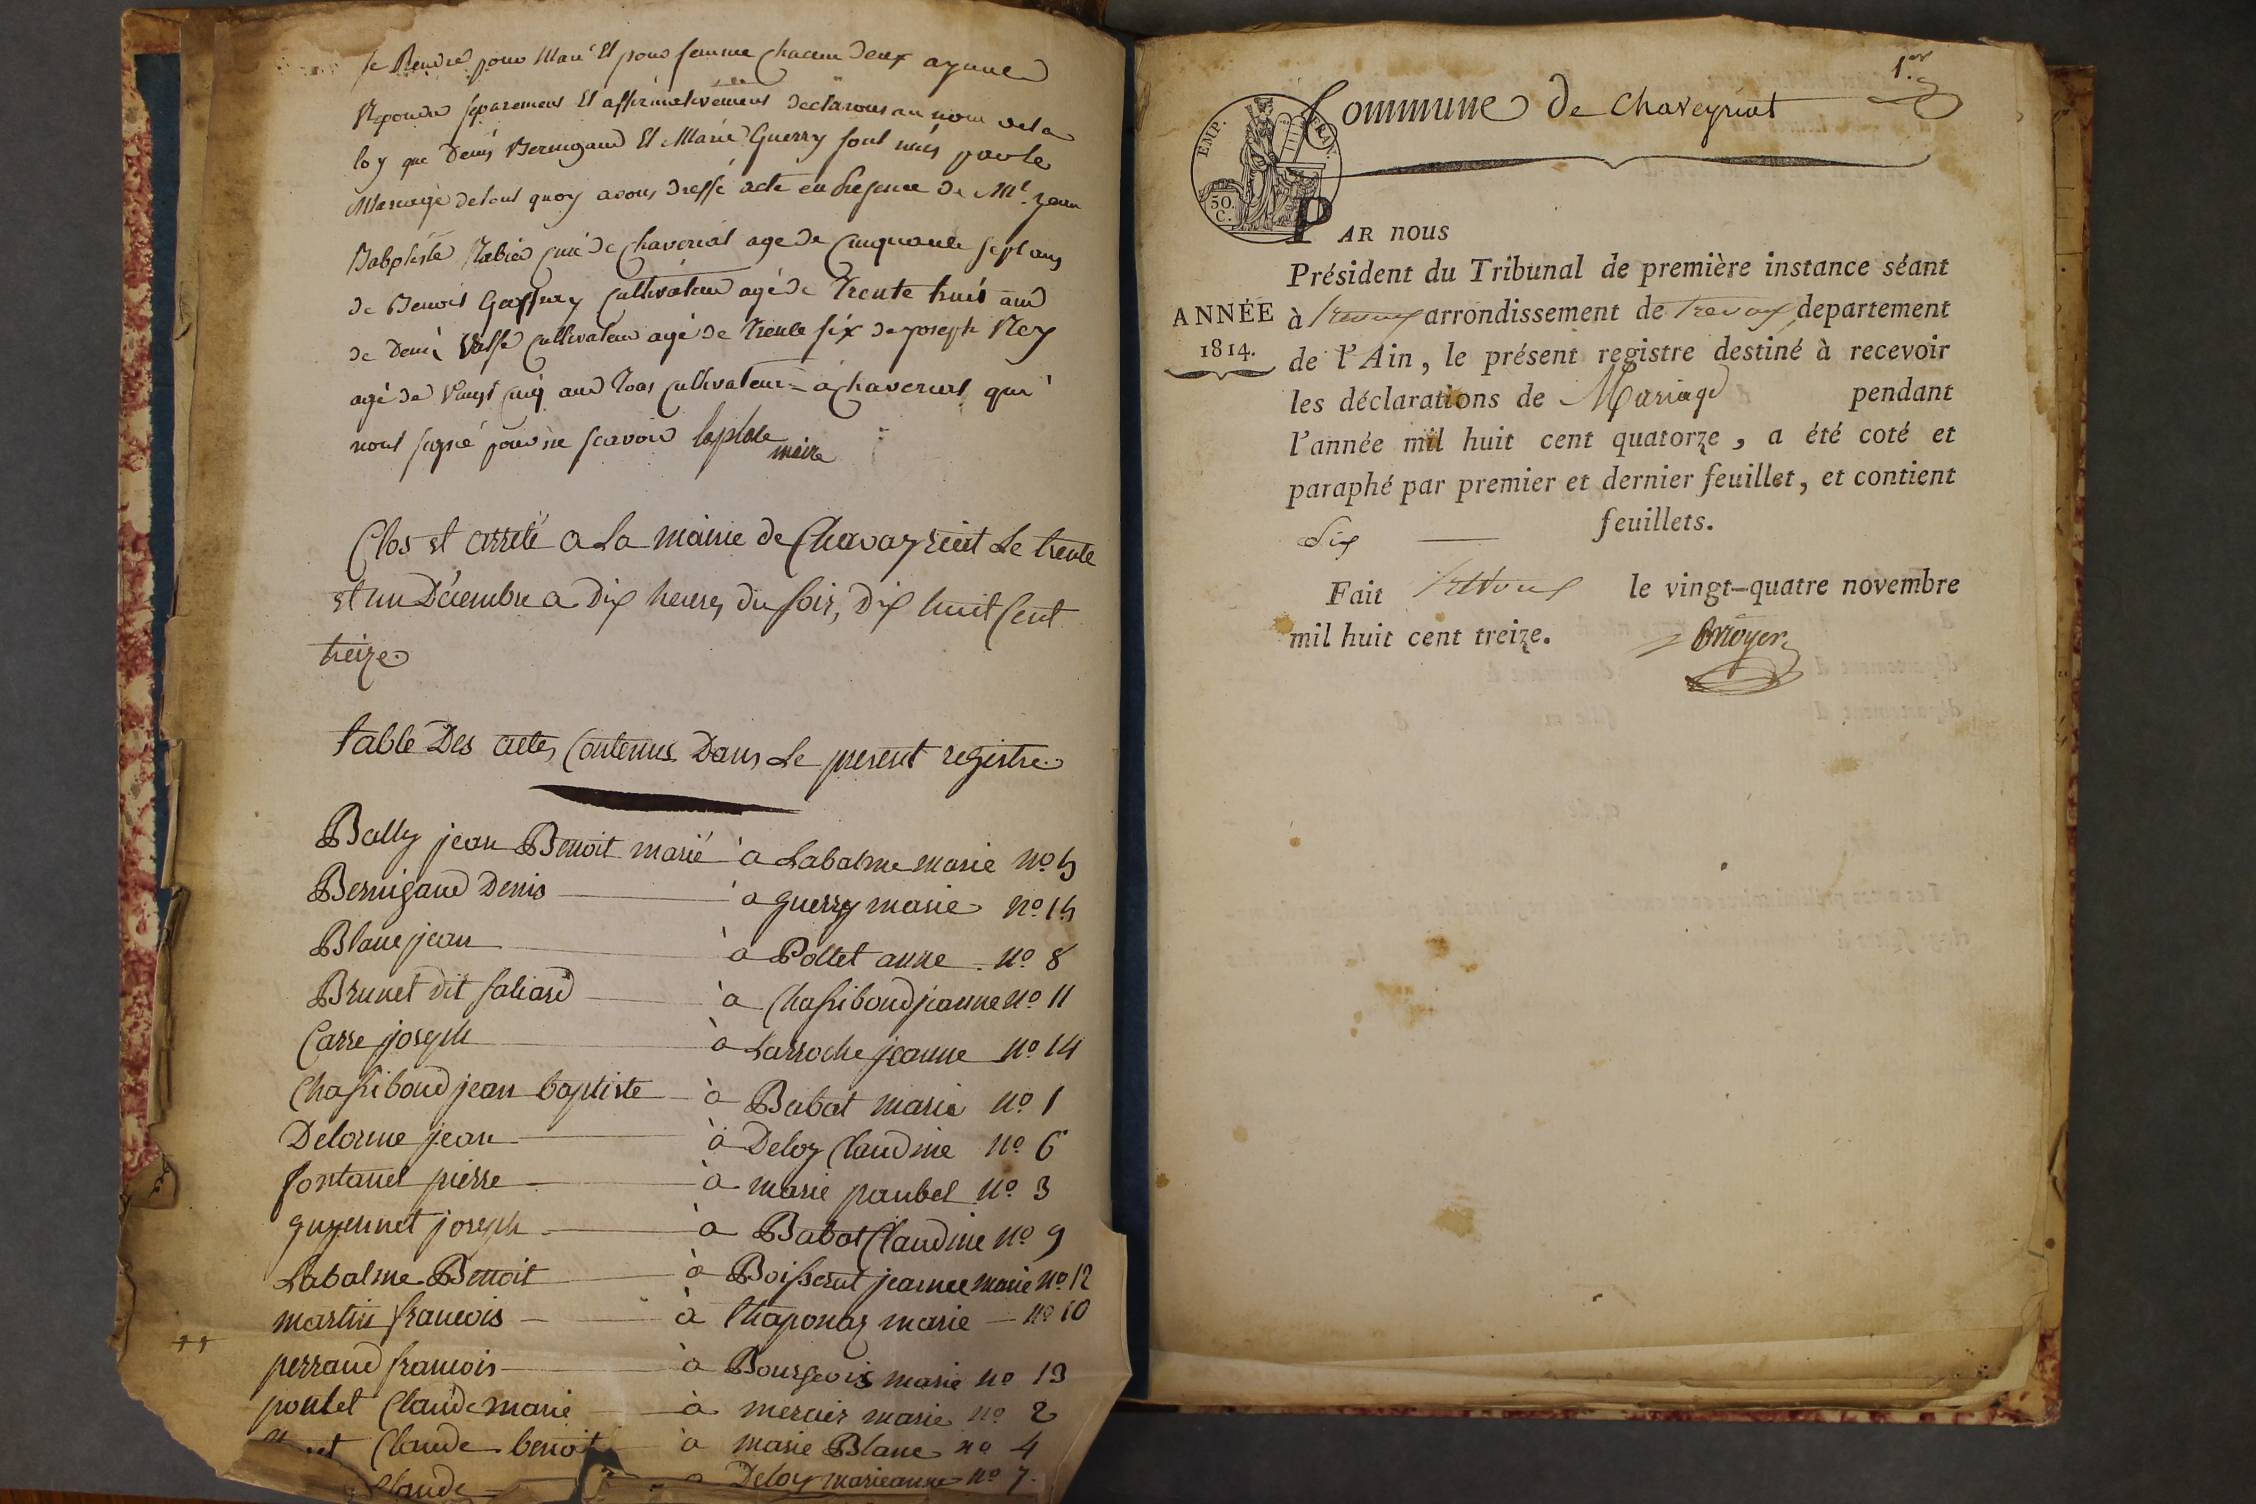 se Rendre pour Mari Et pour femme chacun deux ayant
Repondu separement Et affirmativement declarons au nom de la
loy que Denis Bernigaud Et Marie Guerry sont unis par le
Mariage de tout quoy avons dressé acte en presence de Mr. jean
Babptiste Rabier curé de Chaveriat agé de cinquante sept ans
de Benoit Geoffray cultivateur agé de trente trois ans
de Denis cultivateur agé de trente six de joseph Rey
agé de vingt cinq ans tous cultivateurs à chaveriat qui
nont signé pour ne scavoir laplate
maire
Clos et arrêté a La mairie de Chavayriat Le trente
et un Décembre a Dix heures du soir, Dix huit Cent
treize
table Des actes Contenus Dans Le present registre
Bally jean Benoit marié à Labalme marie no 5
Bernigaud Denis à guerry marie no 15
Blanc jean à Pollet anne no 8
Brunet dit saliard à Chassiboud jeanne no 11
Carre joseph à Larroche jeanne no 14
Chassiboud jean baptiste à Babat marie no 1
Delorme jean à Deloy Claudine no 6
fontanel pierre à marie paubel no 3
guyennet joseph à Babat Claudine no 9
Labalme Benoit à Boisserat jeanne marie no 12
martin francois à Chaponay marie no 10
perraud francois à Bourgeois marie no 13
poulet Claude marie à mercier marie no 2
Claude benoit à marie Blanc no 4
Claude a Deloy marieanne no 7.
1.er
Commune de Chaveyriat
EMP. FRAN.
50.
C.
PAR nous
Président du Tribunal de première instance séant
ANNÉE
1814.
à trevoux arrondissement de trevoux departement
de l'Ain, le présent registre destiné à recevoir
les déclarations de Mariage pendant
l'année mil huit cent quatorze, a été coté et
paraphé par premier et dernier feuillet, et contient
six feuillets.
Fait a trevoux le vingt-quatre novembre
mil huit cent treize.